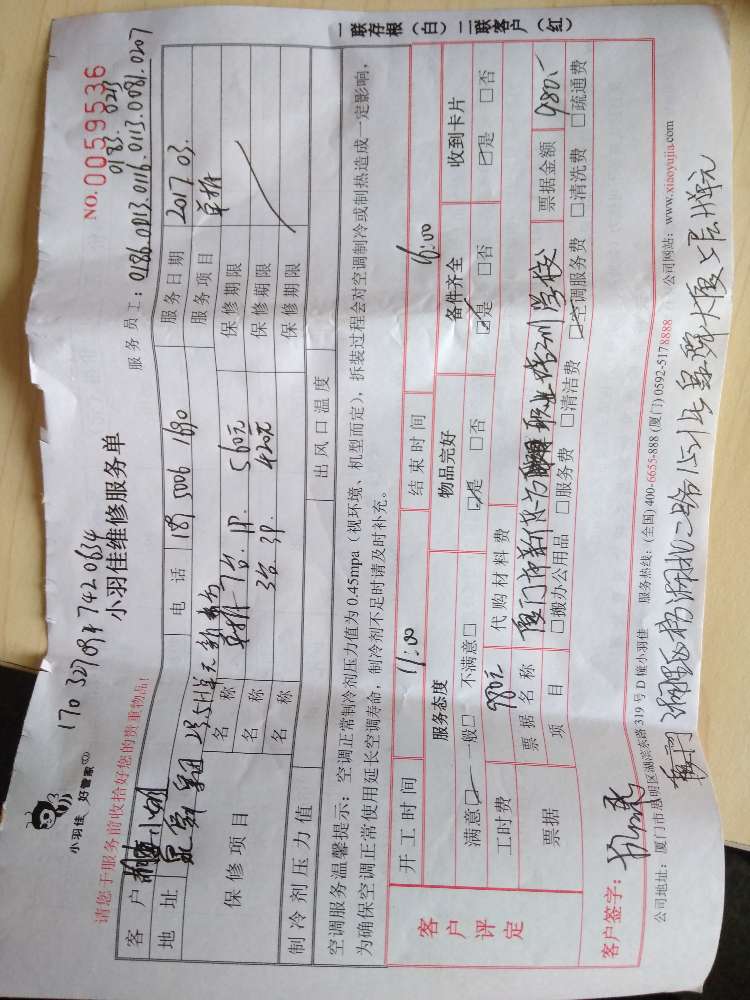 一联存根（白）二联客户（红）
小羽佳 好管家
170 3270 94 7420654
NO.0059536
小羽佳维修服务单
0183. 0211
服务员工：0186.0013.0116.0113.0081.0207
请您于服务前收拾好您的贵重物品！
客户 小明 电话 189 5006 1680 服务日期 2017.03.
地址 服务项目 单拆
保修项目 名称 单拆 7台.1P. 560元 保修期限
名称 3台 3P. 420元 保修期限
名称 保修期限
制冷剂压力值 出风口温度
空调服务温馨提示：空调正常制冷剂压力值为0.45mpa（视环境、机型而定），拆装过程会对空调制冷或制热造成一定影响，
为确保空调正常使用延长空调寿命，制冷剂不足时请及时补充。
客户评定 开工时间 11:00 结束时间 16:00
服务态度 物品完好 备件齐全 收到卡片
满意☑ 一般□ 不满意□ ☑是 □否 ☑是 □否 ☑是 □否
工时费 980元 代购材料费
票据 票据名称 厦门市新东方职业培训学校 票据金额 980.-
项目 □搬办公用品 □服务费 □清洁费 ☑空调服务费 □清洗费 □疏通费
客户签字：
公司地址：厦门市思明区湖滨东路319号D幢小羽佳 服务热线：(全国)400-6655-888 (厦门)0592-5178888 公司网站：www.xiaoyujia.com
厦门 湖北二路 大厦 单元